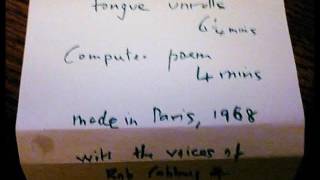 tongue unrolls
6¼ mins
Computer poem
4 mins
made in Paris, 1968
with the voices of
Bob